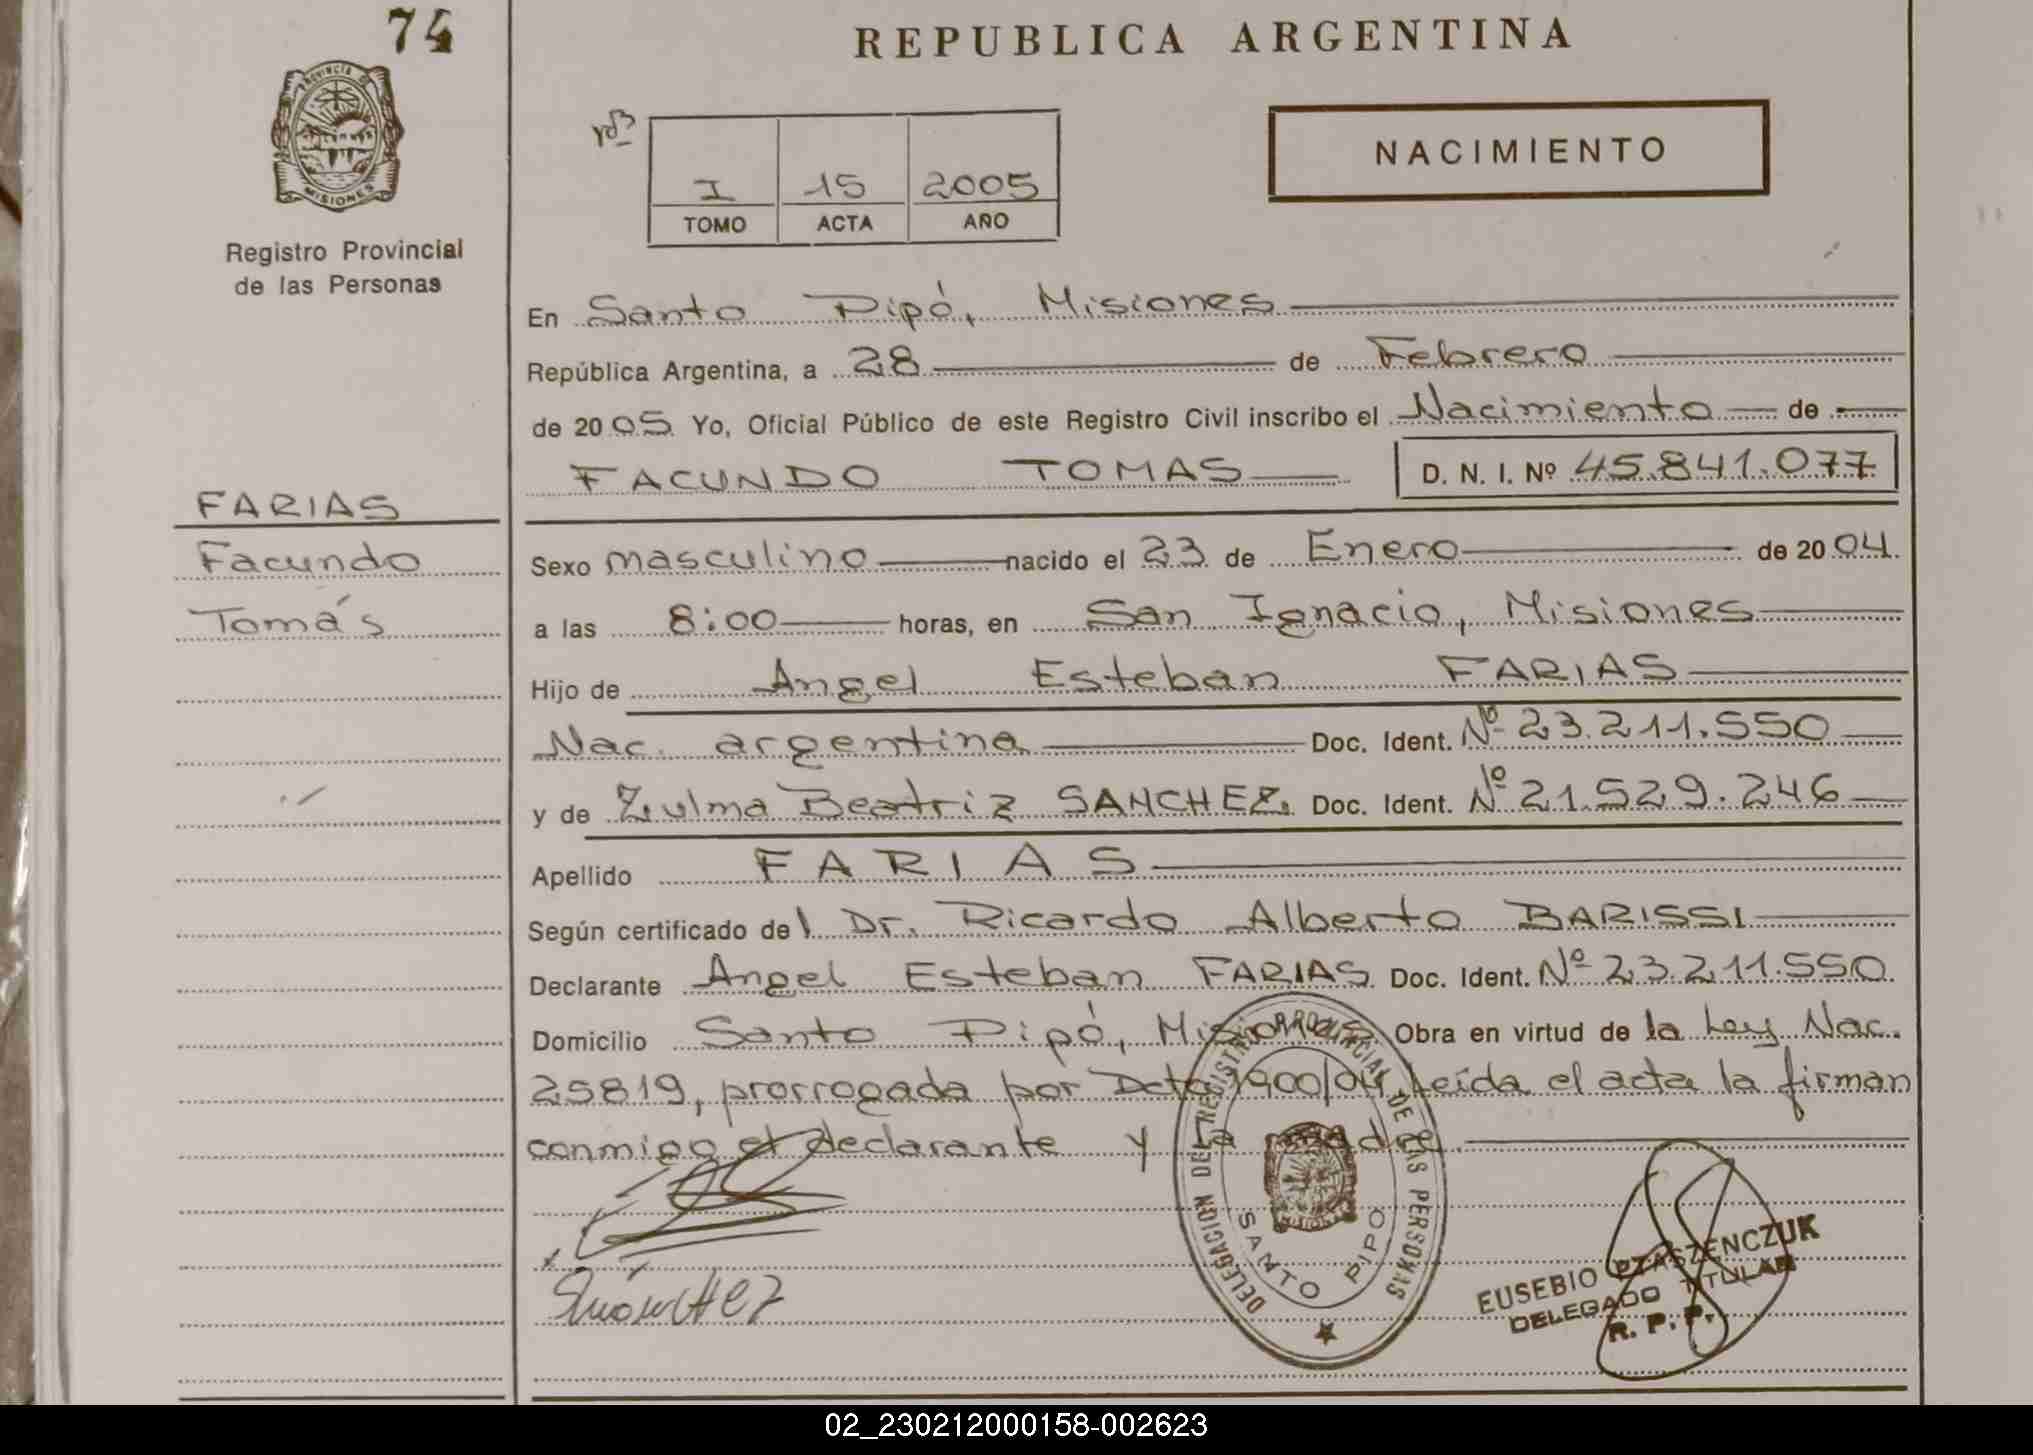 74
REPUBLICA ARGENTINA
PROVINCIA DE
MISIONES
Registro Provincial
de las Personas
I 15 2005
TOMO ACTA AÑO
NACIMIENTO
En Santo Pipó, Misiones
República Argentina, a 28 de Febrero
de 2005 Yo, Oficial Público de este Registro Civil inscribo el Nacimiento de
FACUNDO TOMAS D. N. I. Nº 45.841.077
FARIAS
Facundo
Tomás
Sexo masculino nacido el 23 de Enero de 2004.
a las 8:00 horas, en San Ignacio, Misiones
Hijo de Angel Esteban FARIAS
Nac. argentina Doc. Ident. Nº 23.211.550
y de Zulma Beatriz SANCHEZ. Doc. Ident. Nº 21.529.246
Apellido FARIAS
Según certificado del Dr. Ricardo Alberto BARISSI
Declarante Angel Esteban FARIAS. Doc. Ident. Nº 23.211.550.
Domicilio Santo Pipó, Misiones. Obra en virtud de la Ley Nac.
25819, prorrogada por Dcto 1900/04 Leída el acta la firman
conmigo el declarante y la madre.
DELEGACION DEL REGISTRO PROVINCIAL DE LAS PERSONAS
SANTO PIPO
EUSEBIO PTASZENCZUK
DELEGADO TITULAR
R. P. P.
02_230212000158-002623